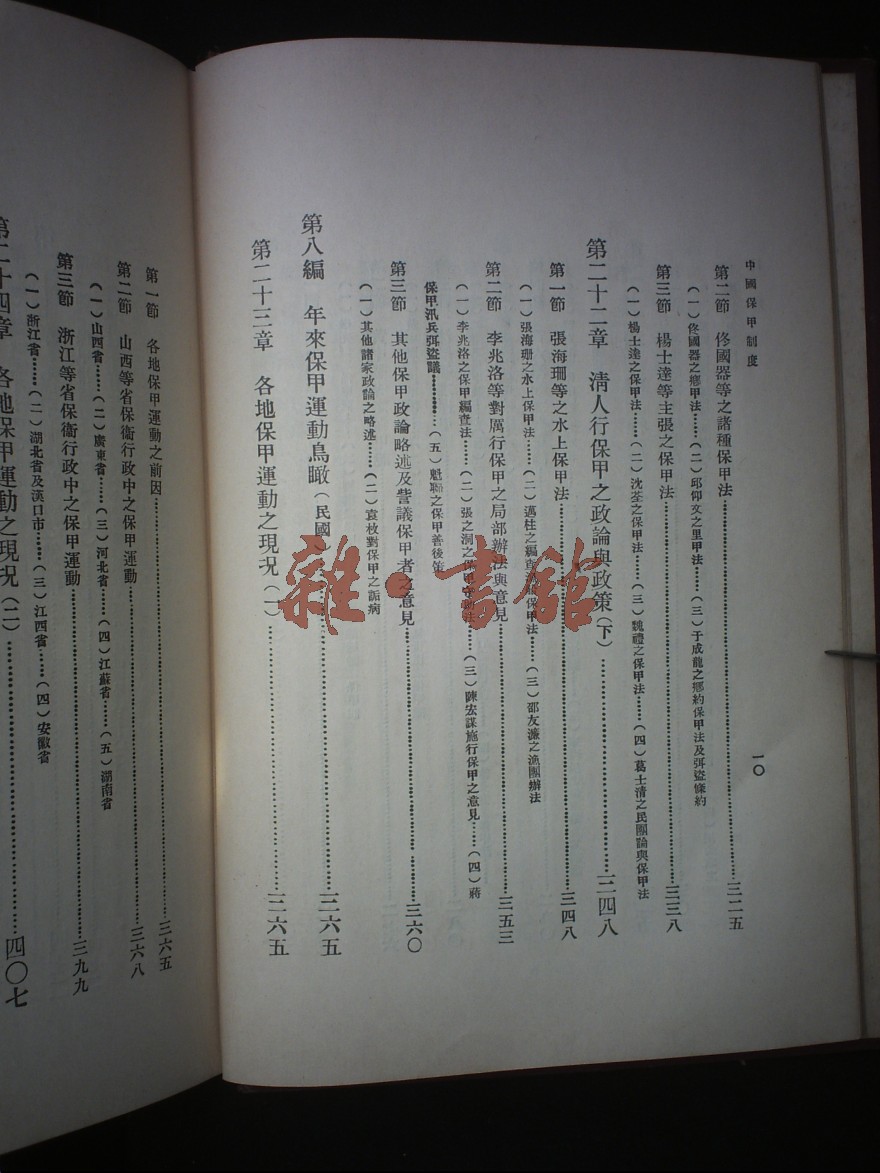 中國保甲制度
一〇
第二節 佟國器等之諸種保甲法……三二五
(一)佟國器之鄉甲法……(二)邱仰文之里甲法……(三)于成龍之鄉約保甲法及弭盜條約
第三節 楊士達等主張之保甲法……三三八
(一)楊士達之保甲法……(二)沈荃之保甲法……(三)魏禮之保甲法……(四)葛士清之民團論與保甲法
第二十二章 淸人行保甲之政論與政策(下)……三四八
第一節 張海珊等之水上保甲法……三四八
(一)張海珊之水上保甲法……(二)邁柱之編查漁船保甲法……(三)邵友濂之漁團辦法
第二節 李兆洛等對厲行保甲之局部辦法與意見……三五三
(一)李兆洛之保甲編查法……(二)張之洞之保甲守助法……(三)陳宏謀施行保甲之意見……(四)蔣
保甲汛兵弭盜議……(五)魁聯之保甲善後策
第三節 其他保甲政論略述及訾議保甲者之意見……三六〇
(一)其他諸家政論之略述……(二)袁枚對保甲之詬病
第八編 年來保甲運動鳥瞰(民國)……三六五
第二十三章 各地保甲運動之現況(一)……三六五
第一節 各地保甲運動之前因……三六五
第二節 山西等省保衞行政中之保甲運動……三六八
(一)山西省……(二)廣東省……(三)河北省……(四)江蘇省……(五)湖南省
第三節 浙江等省保衞行政中之保甲運動……三九九
(一)浙江省……(二)湖北省及漢口市……(三)江西省……(四)安徽省
第二十四章 各地保甲運動之現況(二)……四〇七
雜·書館